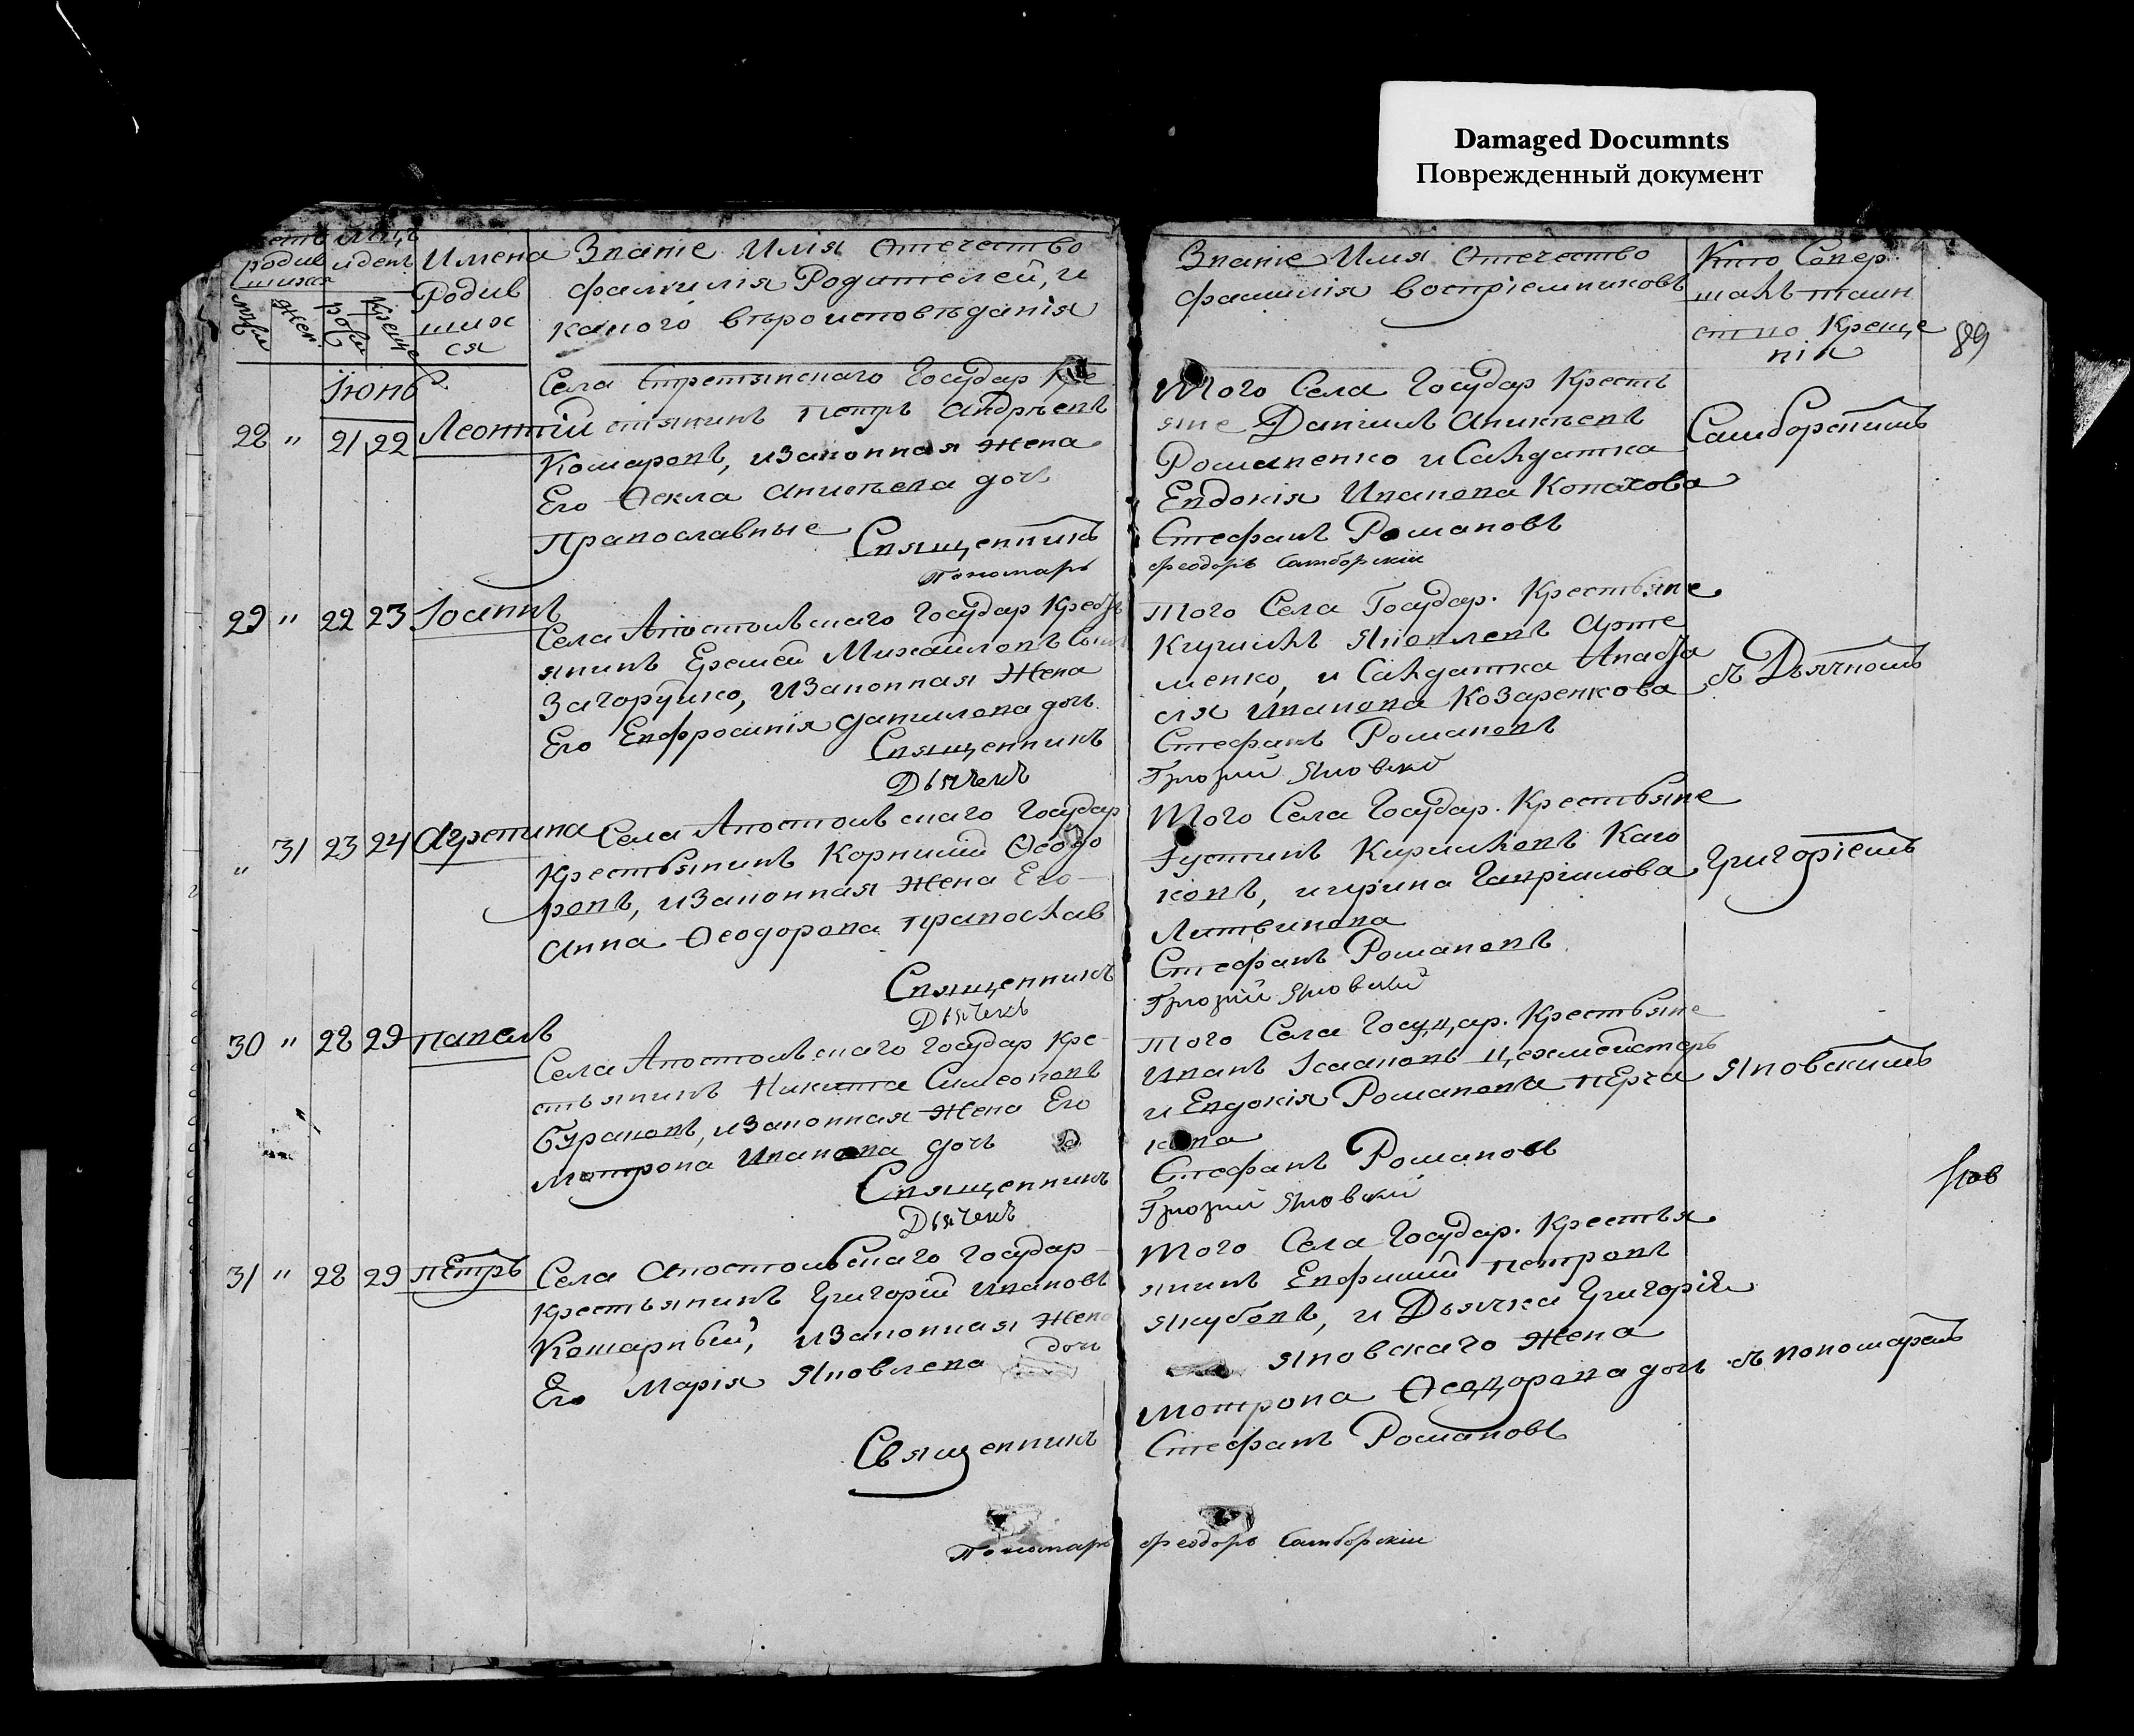 Damaged Documnts
Поврежденный документ
родив
шихся
и день
Имена
Родив
шихся
муж
жен.
Званіе Имя Отечество
фамилія Родителей, и
какого вѣроисповѣданія
Званіе Имя Отечество
фамилія воспріемниковъ
Кто Совер
шалъ таин
ство Креще
нія
89
Іюнь
28 " 21 22 Леонтій
Села Стретинскаго Государ Кре
стьянинъ Петръ Андрѣевъ
Комаровъ, и Законная Жена
Его Ѳекла Аникѣева дочь
Православные
Священникъ
Пономарь
Того Села Государ Кресть
яне Даніилъ Аникѣевъ
Романенко и Салдатка
Евдокія Иванова Конахова
Стефанъ Романовъ
Феодоръ Самборскій
Самборскимъ
29 " 22 23 Іоаннъ
Села Апостольскаго Государ Кресть
янинъ Еремей Михайловъ Сынъ
Загоруйко, и Законная Жена
Его Евфросинія Данилова дочь
Священникъ
Дьячекъ
Того Села Государ. Крестьяне
Кирилъ Яковлевъ Арте
менко, и Салдатка Анаста
сія Иванова Козаренкова
Стефанъ Романовъ
Григорій Яновскій
съ Дьячкомъ
" 31 23 24 Агрепина
Села Апостольскаго Государ
Крестьянинъ Корнилій Ѳеодо
ровъ, и Законная Жена Его
Анна Ѳеодорова православ
Священникъ
Дьячекъ
Того Села Государ. Крестьяне
Густинъ Кириловъ Каго
ковъ, и Ирина Гавріилова
Литвинова
Стефанъ Романовъ
Григорій Яновскій
Григоріемъ
30 " 28 29 Павелъ
Села Апостольскаго Государ Кре
стьянинъ Никита Симеоновъ
Бураковъ, и Законная Жена Его
Мотрона Иванова дочь
Священникъ
Дьячекъ
Того Села Государ. Крестьяне
Иванъ Исааковъ Цехмейстеръ
и Евдокія Романова
Стефанъ Романовъ
Григорій Яновскій
Яновскимъ
31 " 28 29 Петръ
Села Апостольскаго Государ
Крестьянинъ Григорій Ивановъ
Комарный, и Законная Жена
Его Марія Яковлева дочь
Священникъ
Пономарь
Того Села Государ. Крестья
янинъ Евфимій Петровъ
Якубовъ, и Дьячка Григорія
Яновскаго Жена
Мотрона Ѳеодорова дочь
Стефанъ Романовъ
Феодоръ Самборскій
съ пономаремъ